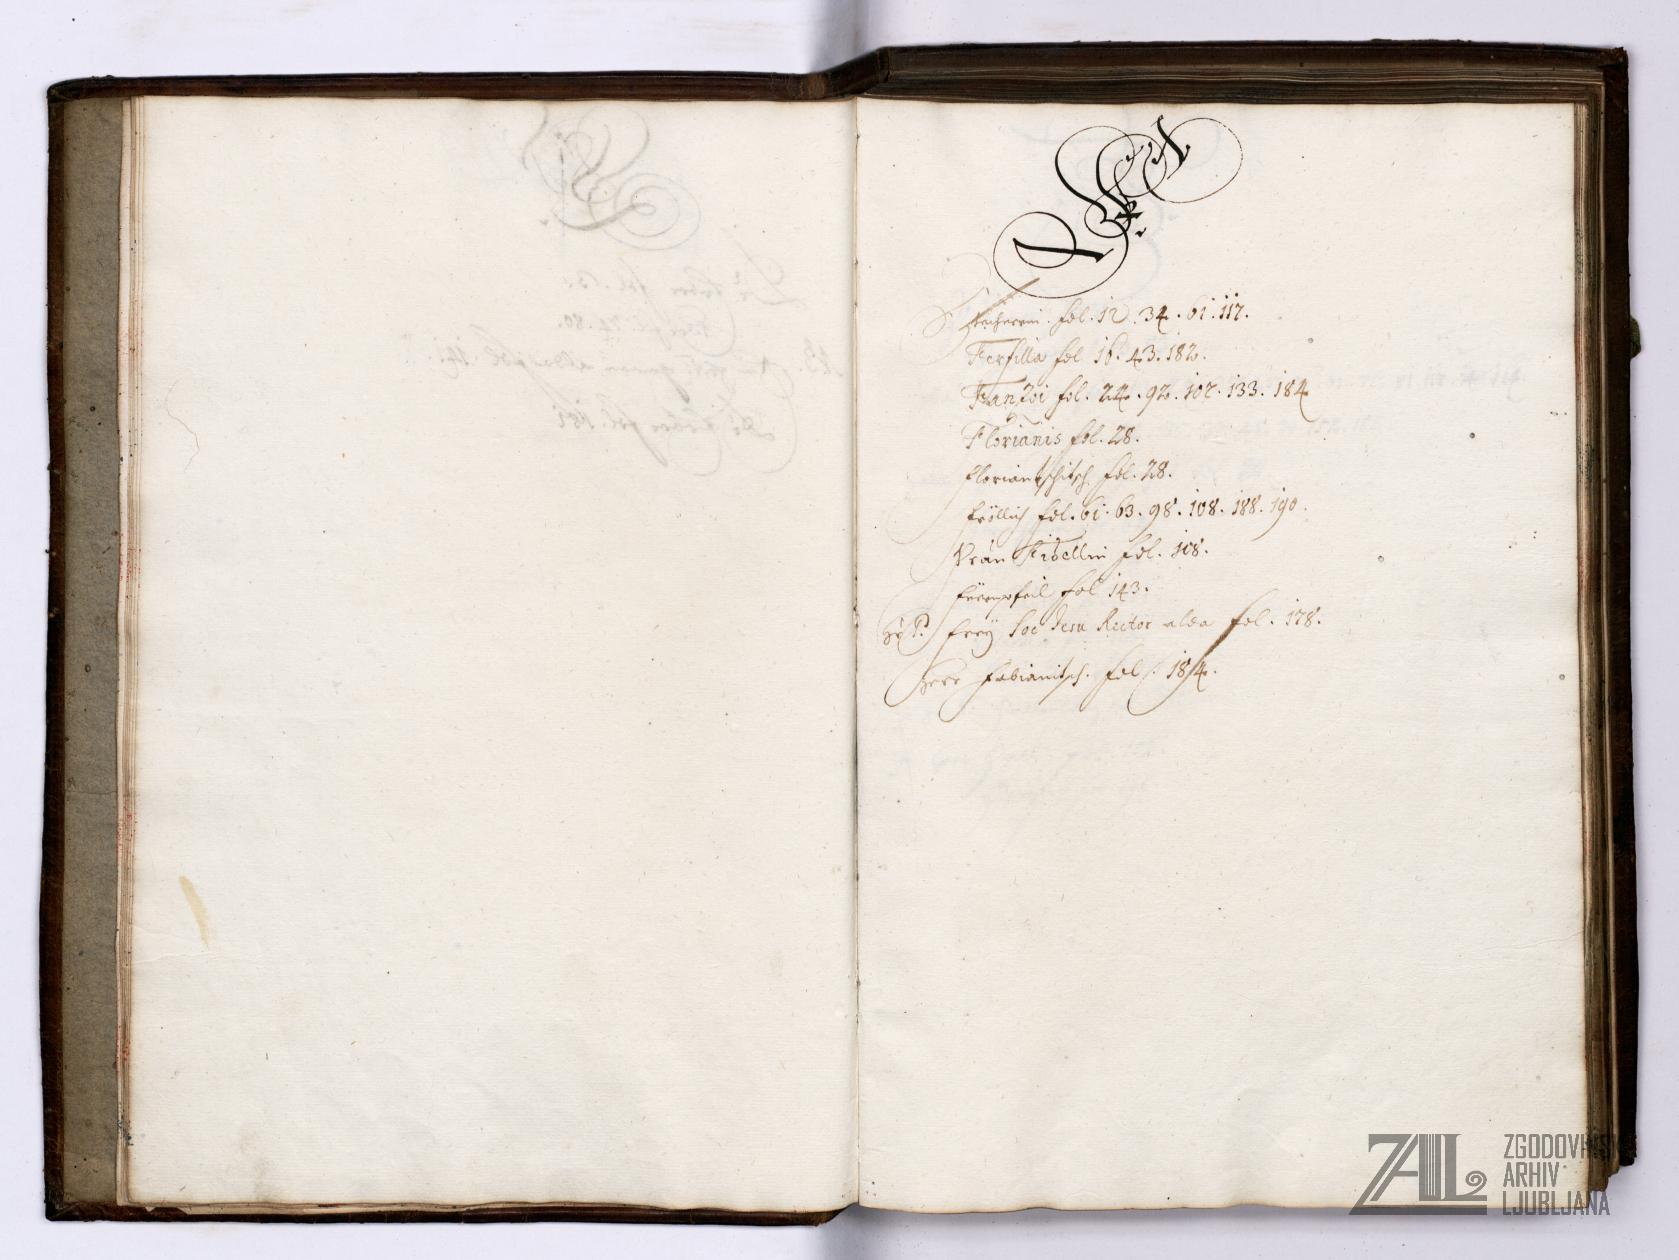 F
fol. 12. 34. 61. 117.
Ferfilla fol 16. 43. 182.
Franzoi fol. 24. 92. 107. 133. 184
Florianis fol. 28.
Floriantschitsch fol. 28.
Fröllich fol. 61. 63. 98. 108. 188. 190.
Fidellin fol. 108.
fol 143.
Frey Soc Jesu Rector alda fol. 178.
Herr Fabianitsch. fol. 184.
ZAL ZGODOVINSKI
ARHIV
LJUBLJANA